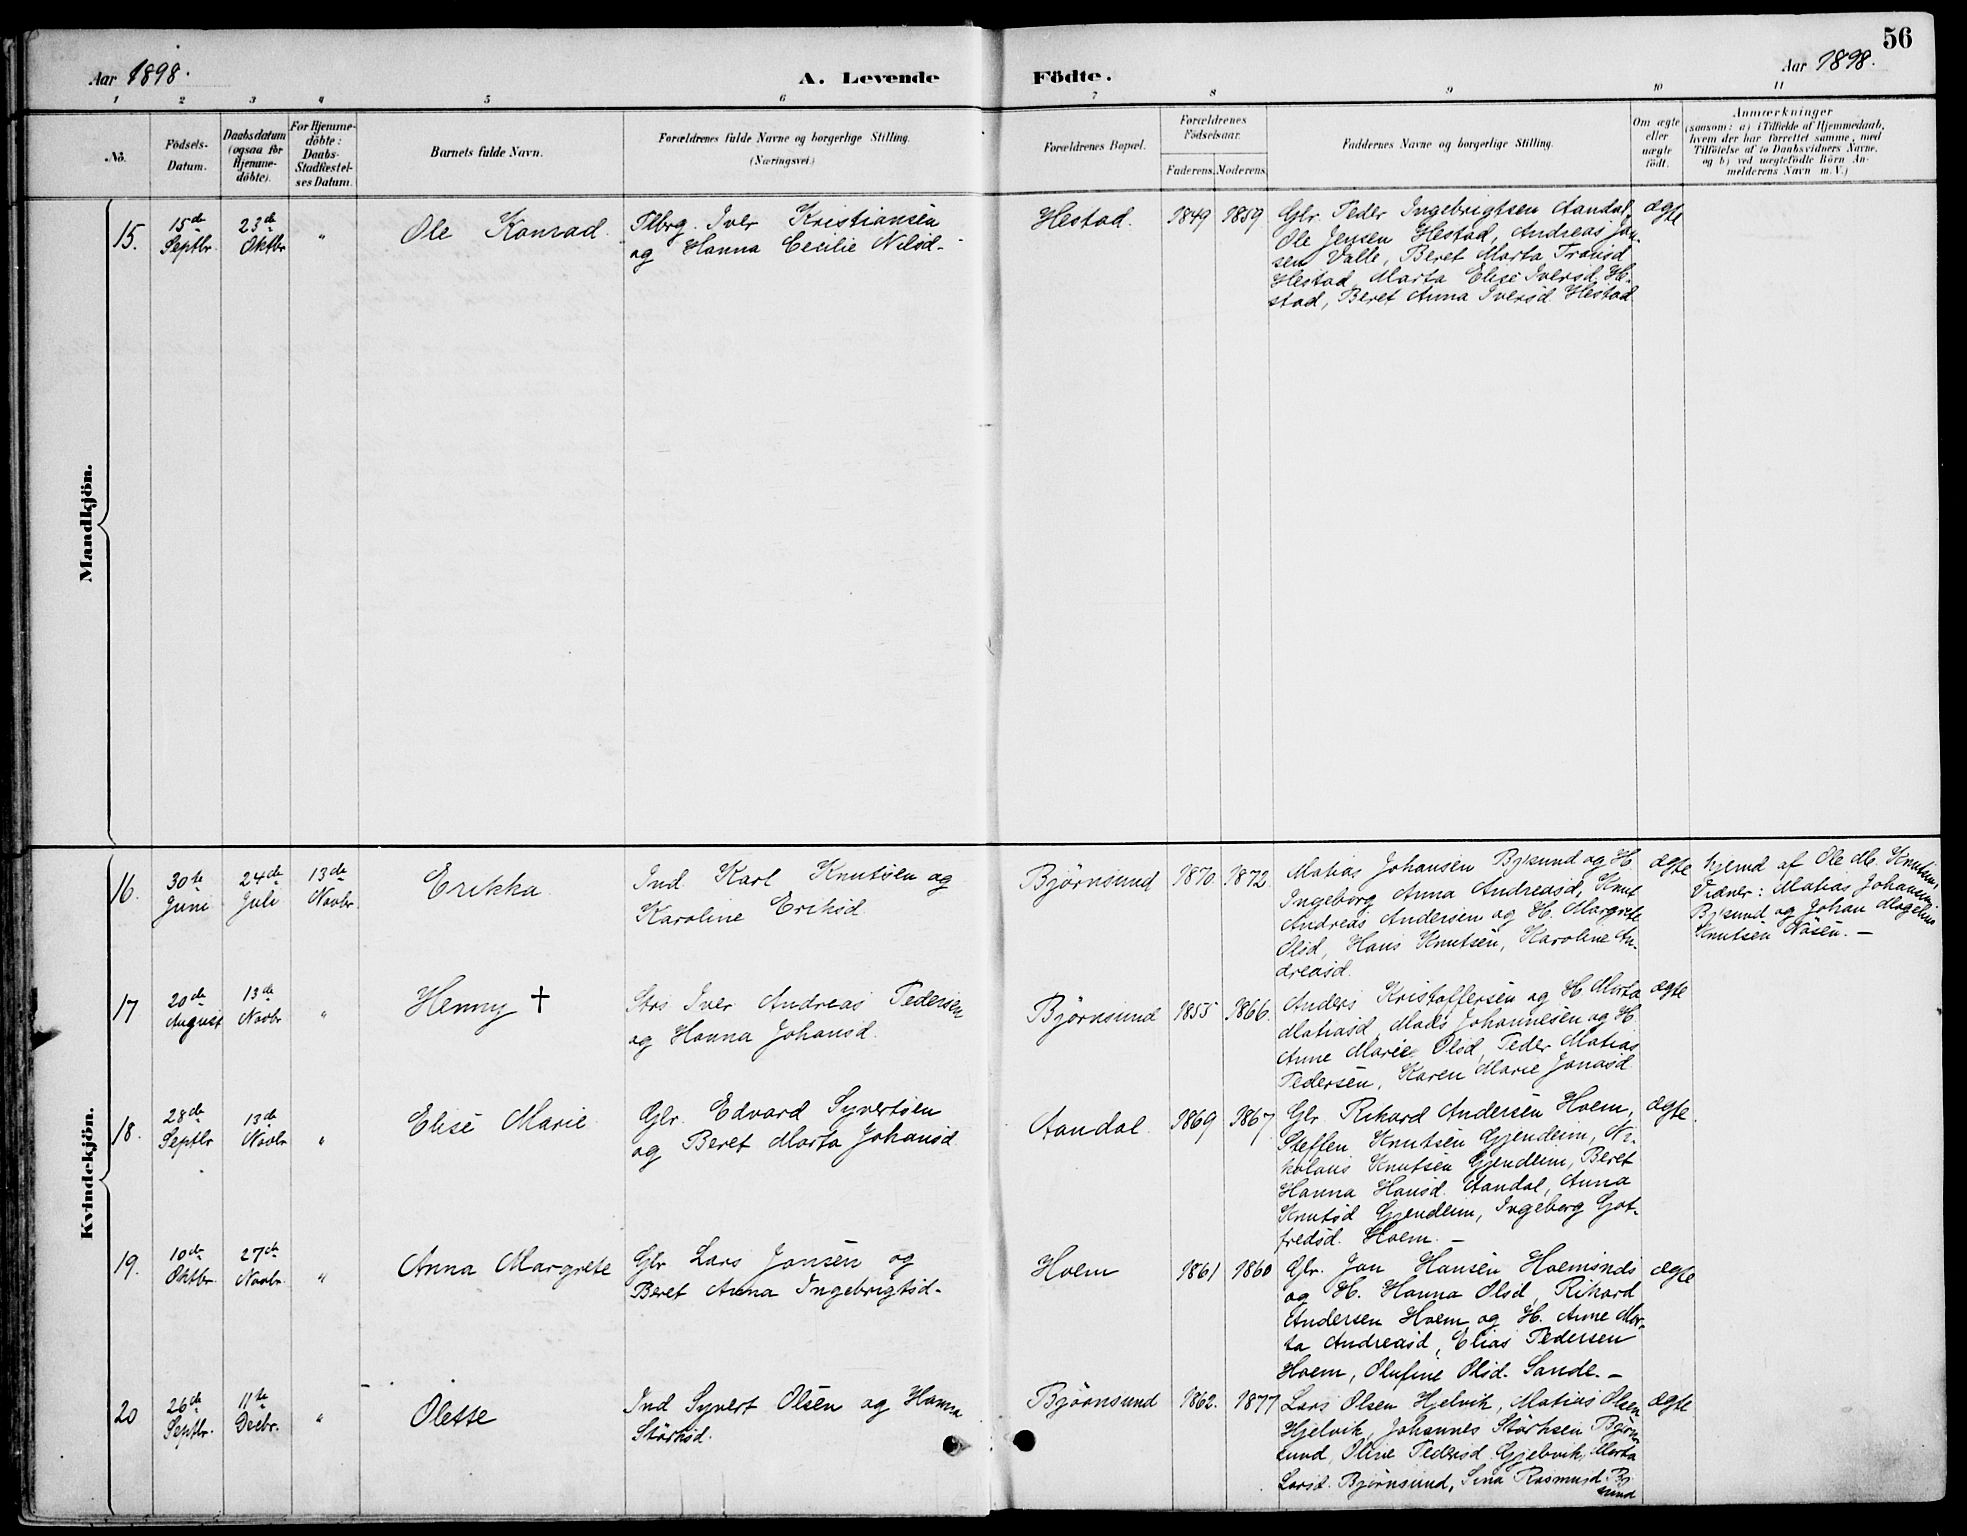 56
Aar 1898.
A. Levende Födte.
Aar 1898.
1 2 3 4 5 6 7 8 9 10 11
No.
Födsels-Datum.
Daabsdatum (ogsaa for Hjemme-döbte).
For Hjemme-döbte: Daabs-Stadfestel-ses Datum.
Barnets fulde Navn.
Forældrenes fulde Navne og borgerlige Stilling.
(Næringsvei.)
Forældrenes Bopæl.
Forældrenes Födselsaar.
Faderens. Moderens.
Faddernes Navne og borgerlige Stilling.
Om ægte eller uægte födt.
Anmærkninger
(saasom: a) i Tilfælde af Hjemmedaab,
hvem der har forrettet samme, med
Tilföielse af to Daabsvidners Navne,
og b) ved uægtefödte Börn An-
melderens Navn m. V.)
Mandkjön.
15. 15de Septbr 23de Oktbr " Ole Konrad.
Iver Kristiansen
og Hanna Cecilie Nilsd.
Hestad. 1849 1859
Glr. Peder Ingebrigtsen Aandal,
Ole Jensen Hestad, Andreas Jon-
sen Valle, Beret Marta Fransd
Hestad, Marta Elise Iversd. He-
stad, Beret Anna Iversd Hestad
ægte
Kvindekjön.
16. 30te Juni 24de Juli 13de Novbr. Erikka
Ind. Karl Knutsen og
Karoline Eriksd.
Björnsund 1870. 1872
Matias Johansen Bj.sund og H.
Ingeborg Anna Andreasd, Knut
Andreas Andersen og H. Margrete
Olsd, Hans Knutsen, Karoline An-
dreasd.
ægte
hjemd af Ole M. Knutsen,
Vidner: Matias Johansen
Bj.sund og Johan
Knutsen Nåsen. –
17 20de August 13de Novbr " Henny †
Iver Andreas Pedersen
og Hanna Johansd.
Björnsund 1855 1866.
Anders Kristoffersen og H. Marta
Matiasd, Mads Johannesen og H.
Anne Marie Olsd, Peder Matias
Pedersen, Karen Marie Jonasd
ægte
18. 28de Septbr 13de Novbr " Elise Marie
Glr. Edvard Syvertsen
og Beret Marta Johansd
Aandal. 1869 1867.
Glr. Rikard Andersen Hoem,
Steffen Knutsen Gjendeim, Ni-
kolaus Knutsen Gjendeim, Beret
Hanna Hansd. Aandal, Anna
Knutsd Gjendeim, Ingeborg Got-
fredsd. Hoem. –
ægte.
19. 10de Oktbr. 27de Novbr. " Anna Margrete
Glr Lars Jonsen og
Beret Anna Ingebrigtsd.
Hoem 1861 1860
Glr. Jon Hansen Hoemsnds
og H. Hanna Olsd, Rikard
Andersen Hoem og H. Anne Mar-
ta Andreasd, Elias Pedersen
Hoem, Olufine Olsd. Sande. –
ægte
20 26de Septbr. 11te Decbr. " Olette
Ind Syvert Olsen og Hanna
Størksd.
Björnsund 1862. 1877
Lars Olsen Hjelvik, Matias Olsen
Hjelvik, Johannes Størksen Björn-
sund, Oline Pedersd Gjelvik, Marta
Larsd. Björnsund, Sina Rasmusd Bj.
sund
ægte